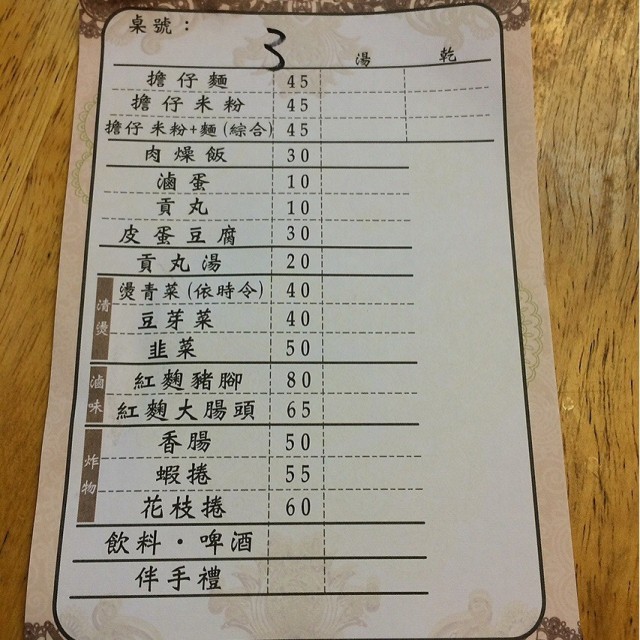 桌號： 3
湯 乾
擔仔麵 45
擔仔米粉 45
擔仔米粉+麵(綜合) 45
肉燥飯 30
滷蛋 10
貢丸 10
皮蛋豆腐 30
貢丸湯 20
清燙
燙青菜(依時令) 40
豆芽菜 40
韭菜 50
滷味
紅麴豬腳 80
紅麴大腸頭 65
炸物
香腸 50
蝦捲 55
花枝捲 60
飲料・啤酒
伴手禮